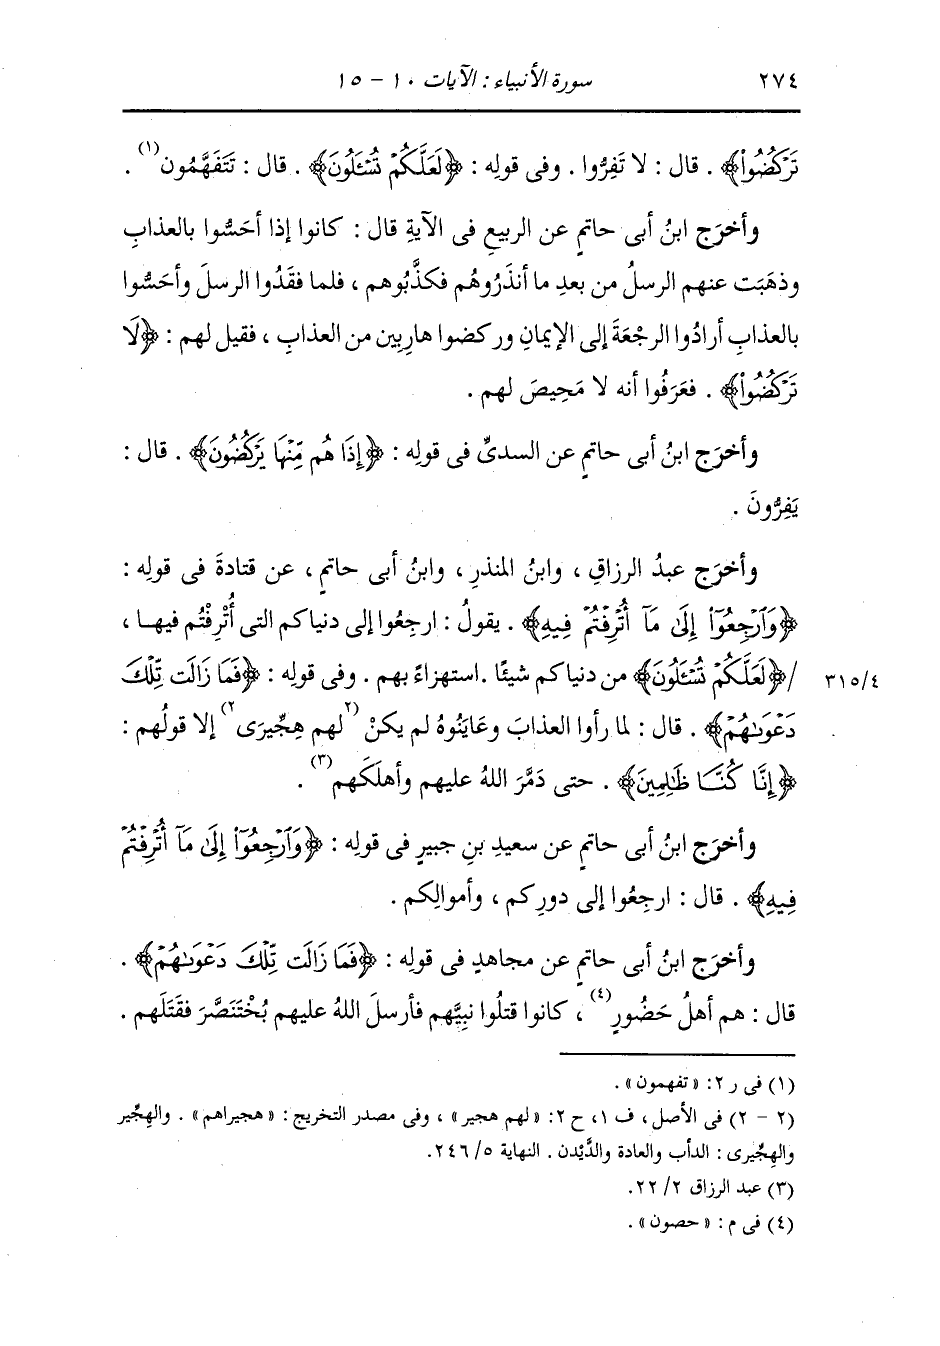 ٢٧٤ سورة الأنبياء : الآيات ١٠ - ١٥
تَرْكُضُوا۟﴾ . قال : لا تَفِرُّوا . وفى قولِه : ﴿لَعَلَّكُمْ تُسْـَٔلُونَ﴾ . قال : تَتَفَهَّمُون(١) .
وأخرَج ابنُ أبى حاتمٍ عن الربيعِ فى الآيةِ قال : كانوا إذا أحَسُّوا بالعذابِ
وذهَبَت عنهم الرسلُ من بعدِ ما أنذَرُوهُم فكذَّبُوهم ، فلما فقَدُوا الرسلَ وأحَسُّوا
بالعذابِ أرادُوا الرجْعَةَ إلى الإيمانِ وركضوا هارِبِين من العذابِ ، فقيل لهم : ﴿لَا
تَرْكُضُوا۟﴾ . فعَرَفُوا أنه لا مَحِيصَ لهم .
وأخرَج ابنُ أبى حاتمٍ عن السدىِّ فى قولِه : ﴿إِذَا هُم مِّنْهَا يَرْكُضُونَ﴾ . قال :
يَفِرُّونَ .
وأخرَج عبدُ الرزاقِ ، وابنُ المنذرِ ، وابنُ أبى حاتمٍ ، عن قتادةَ فى قولِه :
﴿وَٱرْجِعُوٓا۟ إِلَىٰ مَآ أُتْرِفْتُمْ فِيهِ﴾ . يقولُ : ارجِعُوا إلى دنياكم التى أُتْرِفْتُم فيهـا ،
/﴿لَعَلَّكُمْ تُسْـَٔلُونَ﴾ من دنياكم شيئًا .استهزاءً بهم . وفى قولِه : ﴿فَمَا زَالَت تِّلْكَ ٣١٥/٤
دَعْوَىٰهُمْ﴾ . قال : لما رأوا العذابَ وعَايَنُوهُ لم يكنْ (٢لهم هِجِّيرَى٢) إلا قولُهم :
﴿إِنَّا كُنَّا ظَٰلِمِينَ﴾ . حتى دَمَّرَ اللهُ عليهم وأهلَكَهم(٣) .
وأخرَج ابنُ أبى حاتمٍ عن سعيدِ بنِ جبيرٍ فى قولِه : ﴿وَٱرْجِعُوٓا۟ إِلَىٰ مَآ أُتْرِفْتُمْ
فِيهِ﴾ . قال : ارجِعُوا إلى دورِكم ، وأموالِكم .
وأخرَج ابنُ أبى حاتمٍ عن مجاهدٍ فى قولِه : ﴿فَمَا زَالَت تِّلْكَ دَعْوَىٰهُمْ﴾ .
قال : هم أهلُ حَضُورٍ(٤) ، كانوا قتلُوا نبِيَّهم فأرسلَ اللهُ عليهم بُخْتَنَصَّرَ فقَتَلَهم .
(١) فى ر ٢: « تفهمون » .
(٢ - ٢) فى الأصل ، ف ١، ح ٢: « لهم هجير » ، وفى مصدر التخريج : « هجيراهم » . والهِجِّير
والهِجِّيرى : الدأب والعادة والدَّيْدن . النهاية ٥/ ٢٤٦.
(٣) عبد الرزاق ٢/ ٢٢.
(٤) فى م : « حصون » .